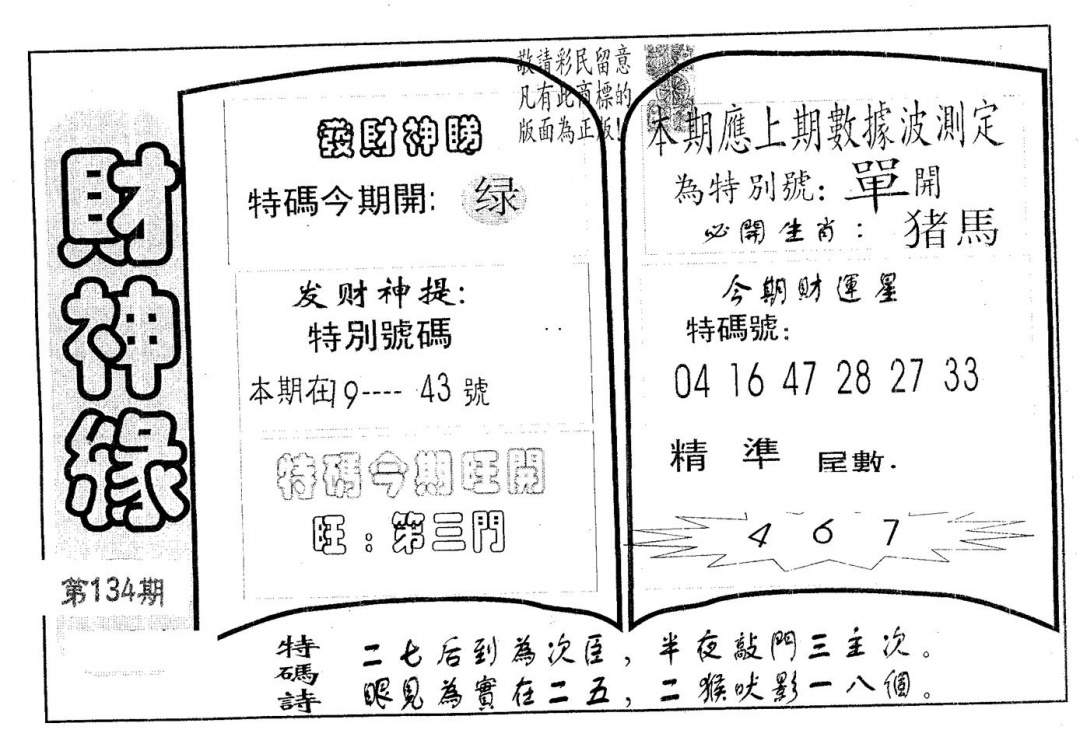 財神緣
第134期
敬請彩民留意
凡有此商標的
版面為正版!
發財神睇
特碼今期開: 绿
发财神提:
特別號碼
本期在19---- 43 號
特碼今期旺開
旺:第三門
本期應上期數據波測定
為特別號: 單開
必開生肖: 猪馬
今期財運星
特碼號:
04 16 47 28 27 33
精 準 尾數.
4 6 7
特碼詩
二七后到為次臣, 半夜敲門三主次。
眼見為實在二五, 二猴吠影一八個。